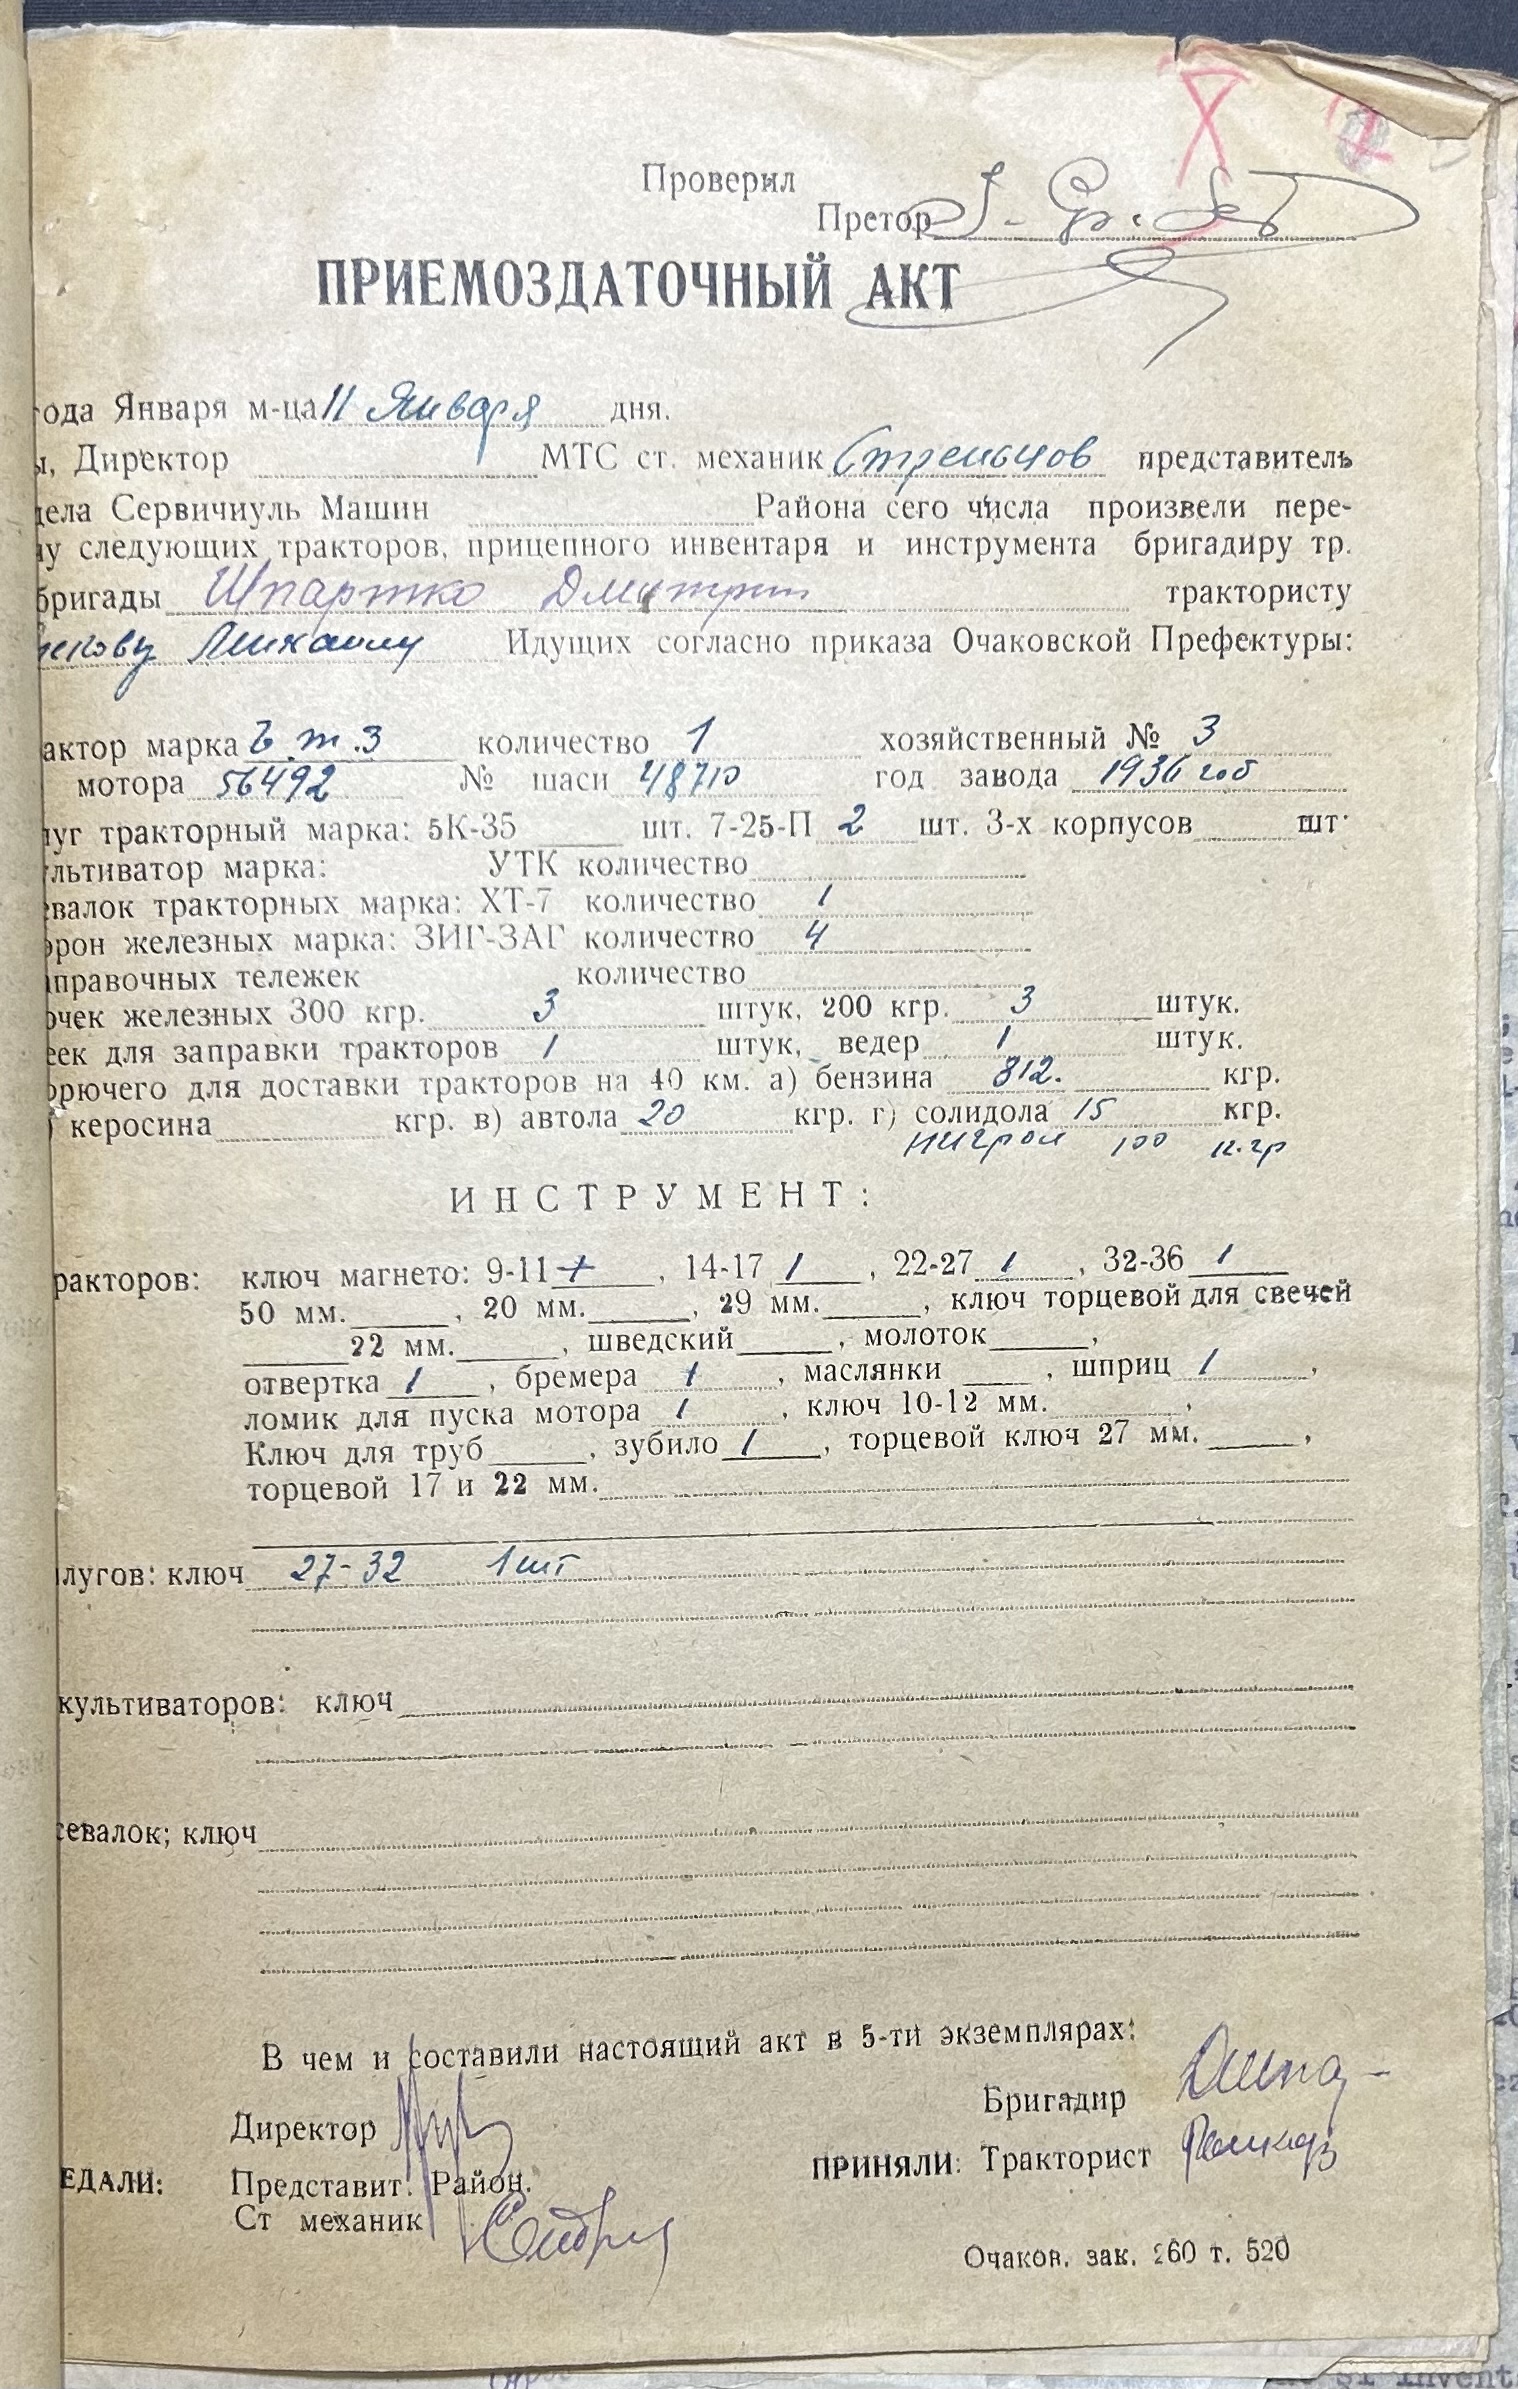 Проверил
Претор
ПРИЕМОЗДАТОЧНЫЙ АКТ
года Января м-ца 11 Января дня.
ы, Директор МТС ст. механик Стрельцов представитель
дела Сервичиуль Машин Района сего числа произвели пере-
чу следующих тракторов, прицепного инвентаря и инструмента бригадиру тр.
бригады Шпартко Дмитрий трактористу
Михаилу Идущих согласно приказа Очаковской Префектуры:
актор марка количество 1 хозяйственный № 3
мотора 56492 № шаси 48710 год завода 1936 год
луг тракторный марка: 5К-35 шт. 7-25-П 2 шт. 3-х корпусов шт.
льтиватор марка: УТК количество
евалок тракторных марка: ХТ-7 количество 1
орон железных марка: ЗИГ-ЗАГ количество 4
аправочных тележек количество
очек железных 300 кгр. 3 штук, 200 кгр. 3 штук.
еек для заправки тракторов 1 штук, ведер 1 штук.
орючего для доставки тракторов на 40 км. а) бензина 812. кгр.
) керосина кгр. в) автола 20 кгр. г) солидола 15 кгр.
нигрол 100 к.гр
ИНСТРУМЕНТ:
ракторов: ключ магнето: 9-11 , 14-17 1 , 22-27 1 , 32-36 1
50 мм. , 20 мм. , 29 мм. , ключ торцевой для свечей
22 мм. , шведский , молоток ,
отвертка 1 , бремера 1 , маслянки , шприц 1 ,
ломик для пуска мотора 1 , ключ 10-12 мм. ,
Ключ для труб , зубило 1 , торцевой ключ 27 мм. ,
торцевой 17 и 22 мм.
лугов: ключ 27-32 1 шт
культиваторов: ключ
севалок; ключ
В чем и составили настоящий акт в 5-ти экземплярах:
Бригадир
Директор
ПРИНЯЛИ: Тракторист
ЕДАЛИ: Представит. Район.
Ст механик
Очаков. зак. 260 т. 520